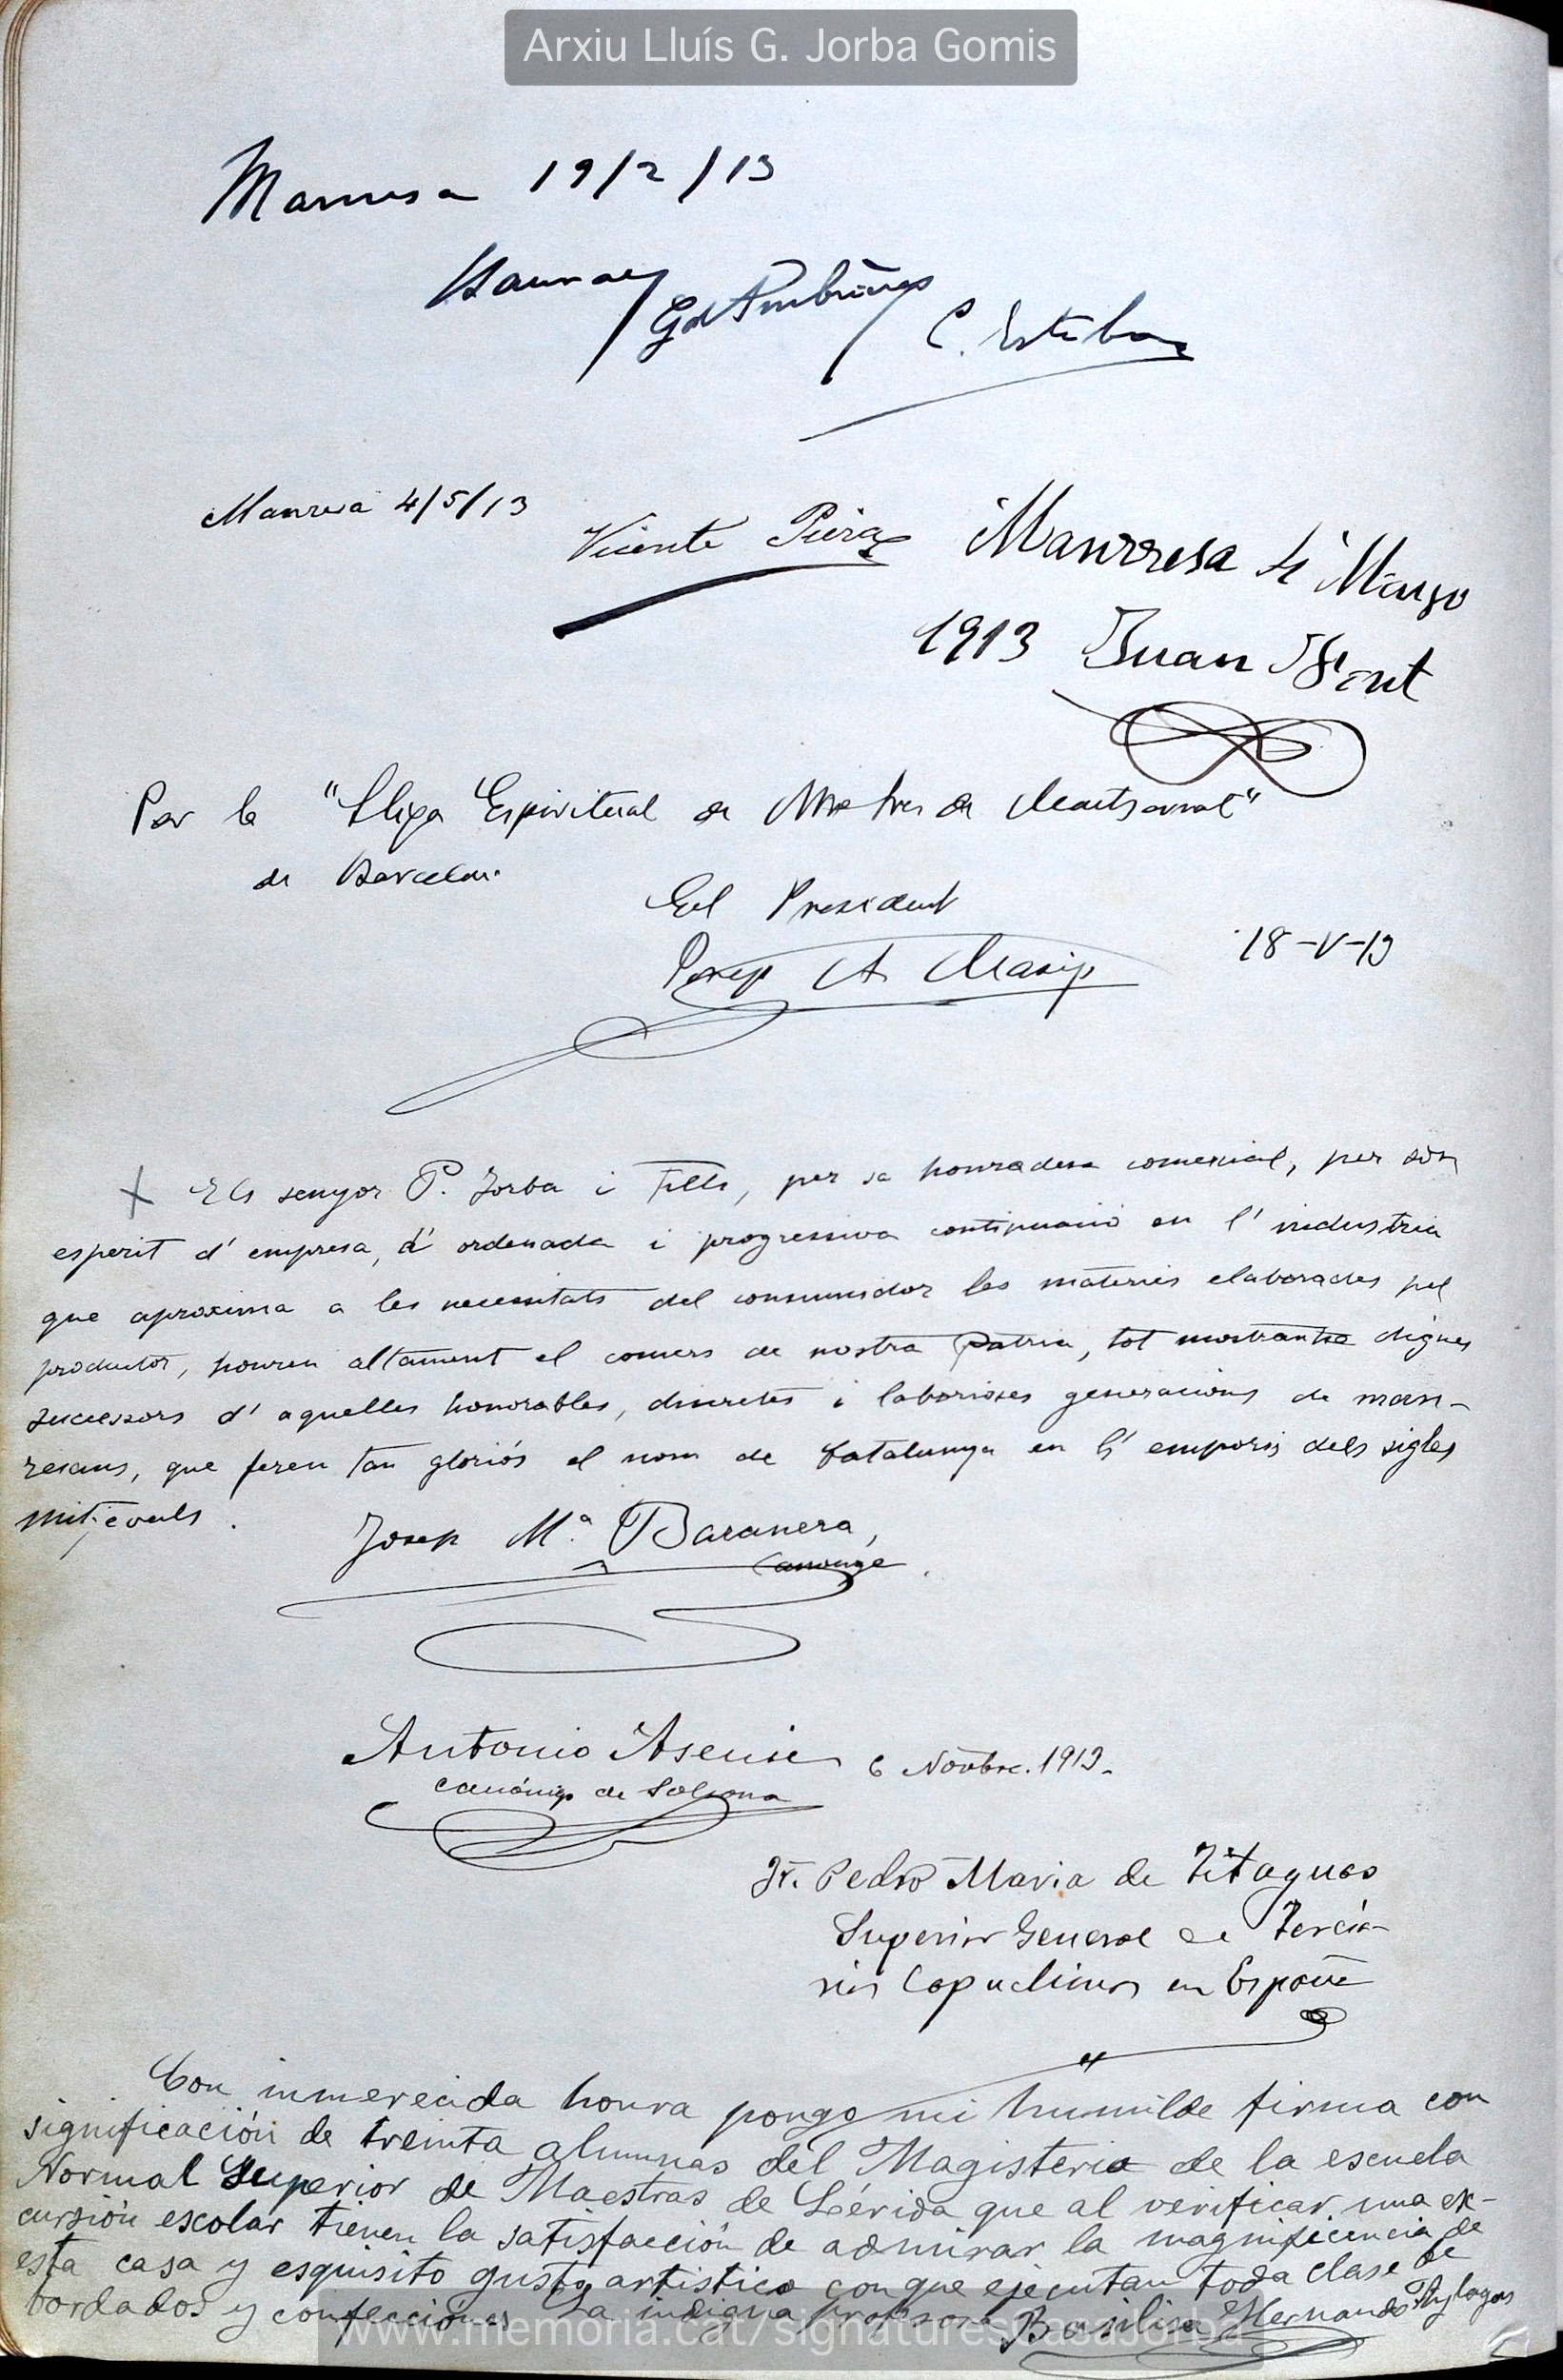 Arxiu Lluís G. Jorba Gomis
Manresa 19/2/13
C. Esteban
Manresa 4/5/13
Vicente Piera
Manrresa 4 Marzo
1913 Juan Font
Per la "Lliga Espiritual de Mare de Deu de Montserrat"
de Barcelona
El President
Josep A. Masip
18-V-13
Els senyor P. Jorba i Fills, per sa honradesa comercial, per son
esperit d'empresa, d'ordenada i progressiva continuació en l'industria
que aproxima a les necessitats del consumidor les materies elaborades pel
productor, honren altament el comers de nostra Patria, tot mostrantse dignes
successors d'aquelles honorables, discretes i laborioses generacions de man-
resans, que feren tan gloriós el nom de Catalunya en l'empori dels sigles
mitjevals.
Josep Mª Baranera,
Canonge.
Antonio Asensio 6 Novbre. 1913.
canónigo de Solsona
Fr. Pedro Maria de Titaguas
Superior General de Tercia-
rios Capuchinos en España
Con inmerecida honra pongo mi humilde firma con
significación de treinta alumnas del Magisterio de la escuela
Normal Superior de Maestras de Lérida que al verificar una ex-
cursión escolar tienen la satisfacción de admirar la magnificencia de
esta casa y esquisito gusto artistico con que ejecutan toda clase de
bordados y confecciones La indigna profesora Basilisa Hernando
www.memoria.cat/signaturescasajorba